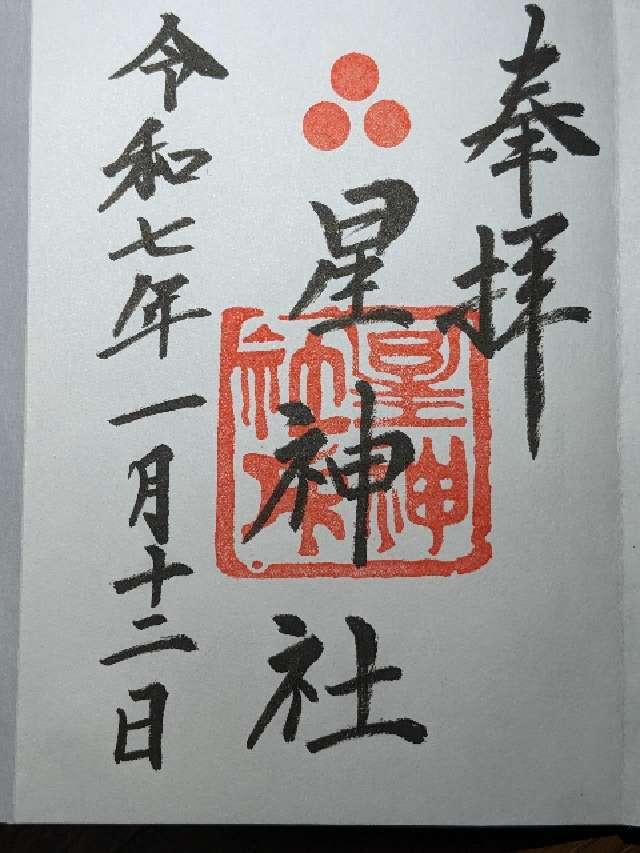 奉拝
星神社
令和七年一月十二日